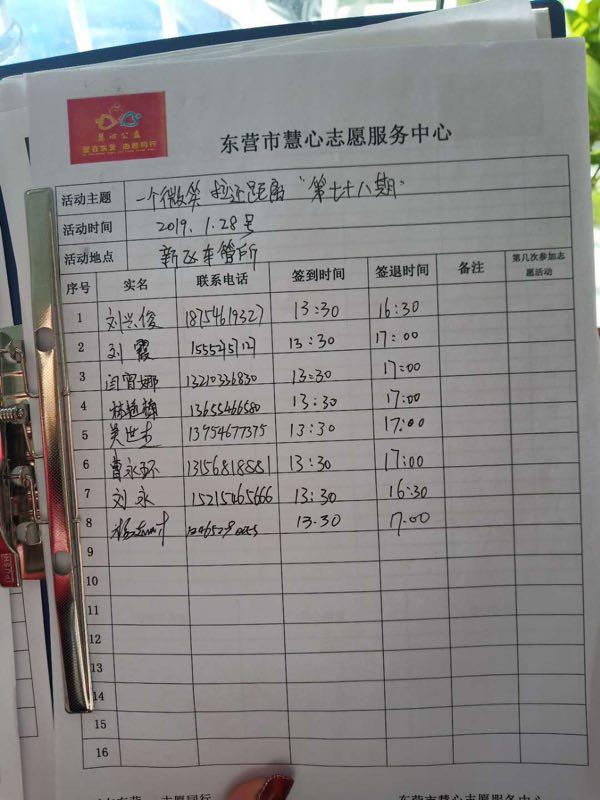 慧心公益
爱在东营 志愿同行
东营市慧心志愿服务中心
活动主题 一个微笑 拉近距离 "第七十八期"
活动时间 2019.1.28号
活动地点 新区车管所
序号 实名 联系电话 签到时间 签退时间 备注 第几次参加志愿活动
1 刘兴俊 18754619327 13:30 16:30
2 刘霞 13:30 17:00
3 闫雪娜 13210336830 13:30 17:00
4 13655466580 13:30 17:00
5 吴世杰 13954677375 13:30 17:00
6 曹永环 13156818881 13:30 17:00
7 刘永 15215465666 13:30 16:30
8 13.30 17.00
9
10
11
12
13
14
15
16
志愿同行 东营市慧心志愿服务中心